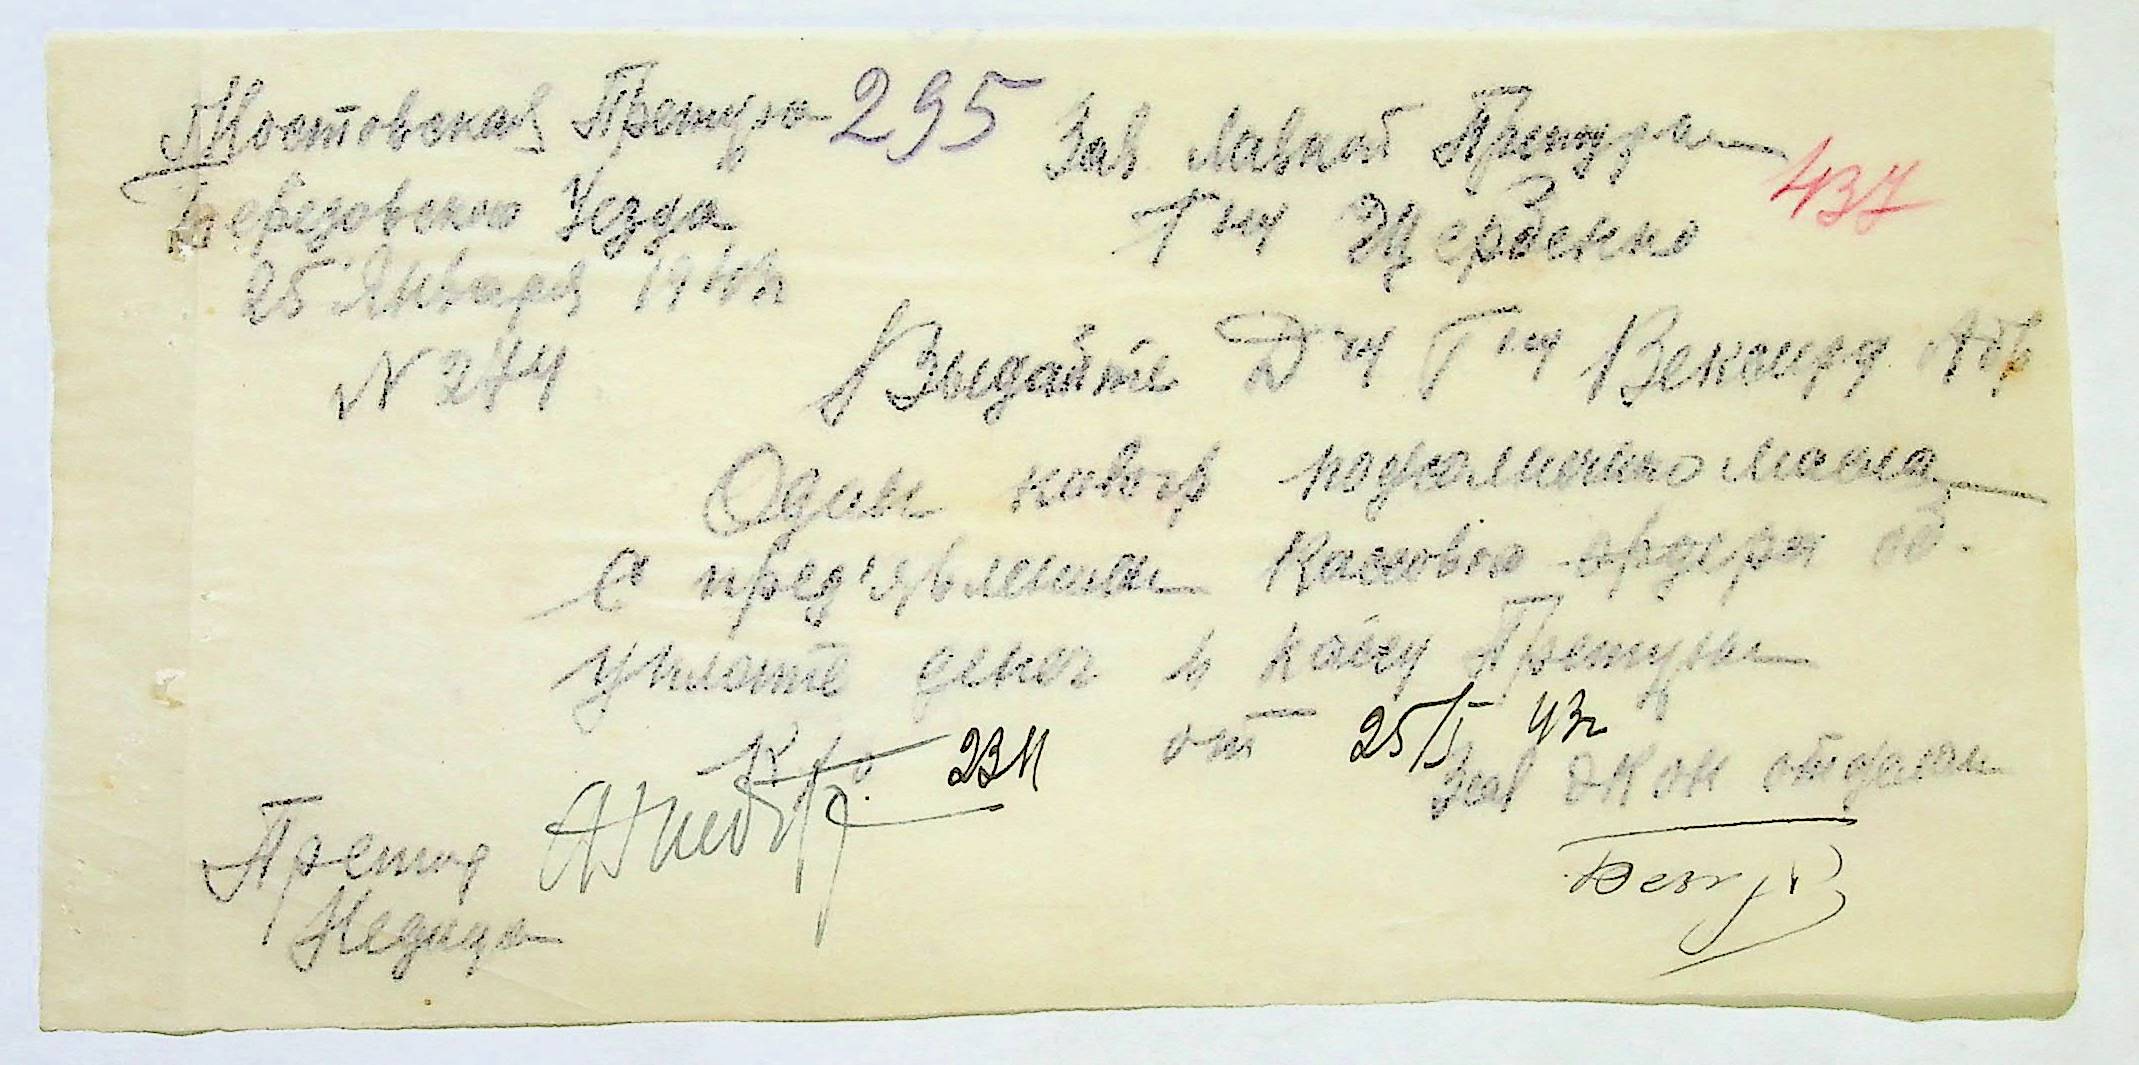 Мостовская Претура
Березовского Уезда
25 Января 1943г
N 274
295
Зав Лавкой Претуры
Г-ну Щербенко
437
Выдайте Д-ну Г-ну
Один килогр подсолничного масла
С пред'явлением Кассового ордера об.
уплате денег в кассу Претуры
К/о 2311 от 25/I 43г
Зав экон отделом
Претор